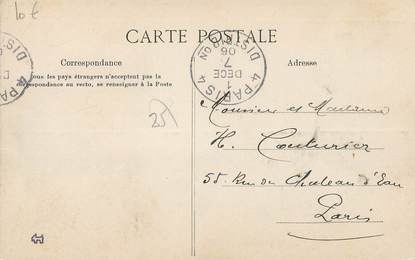 10 €
CARTE POSTALE
Correspondance
Tous les pays étrangers n'acceptent pas la
correspondance au recto, se renseigner à la Poste
Adresse
PARIS 4
DISTRIBUTION
7
1 DECE
06
25
Monsieur et Madame
H. Couturier
55 Rue du Chateau d'Eau
Paris